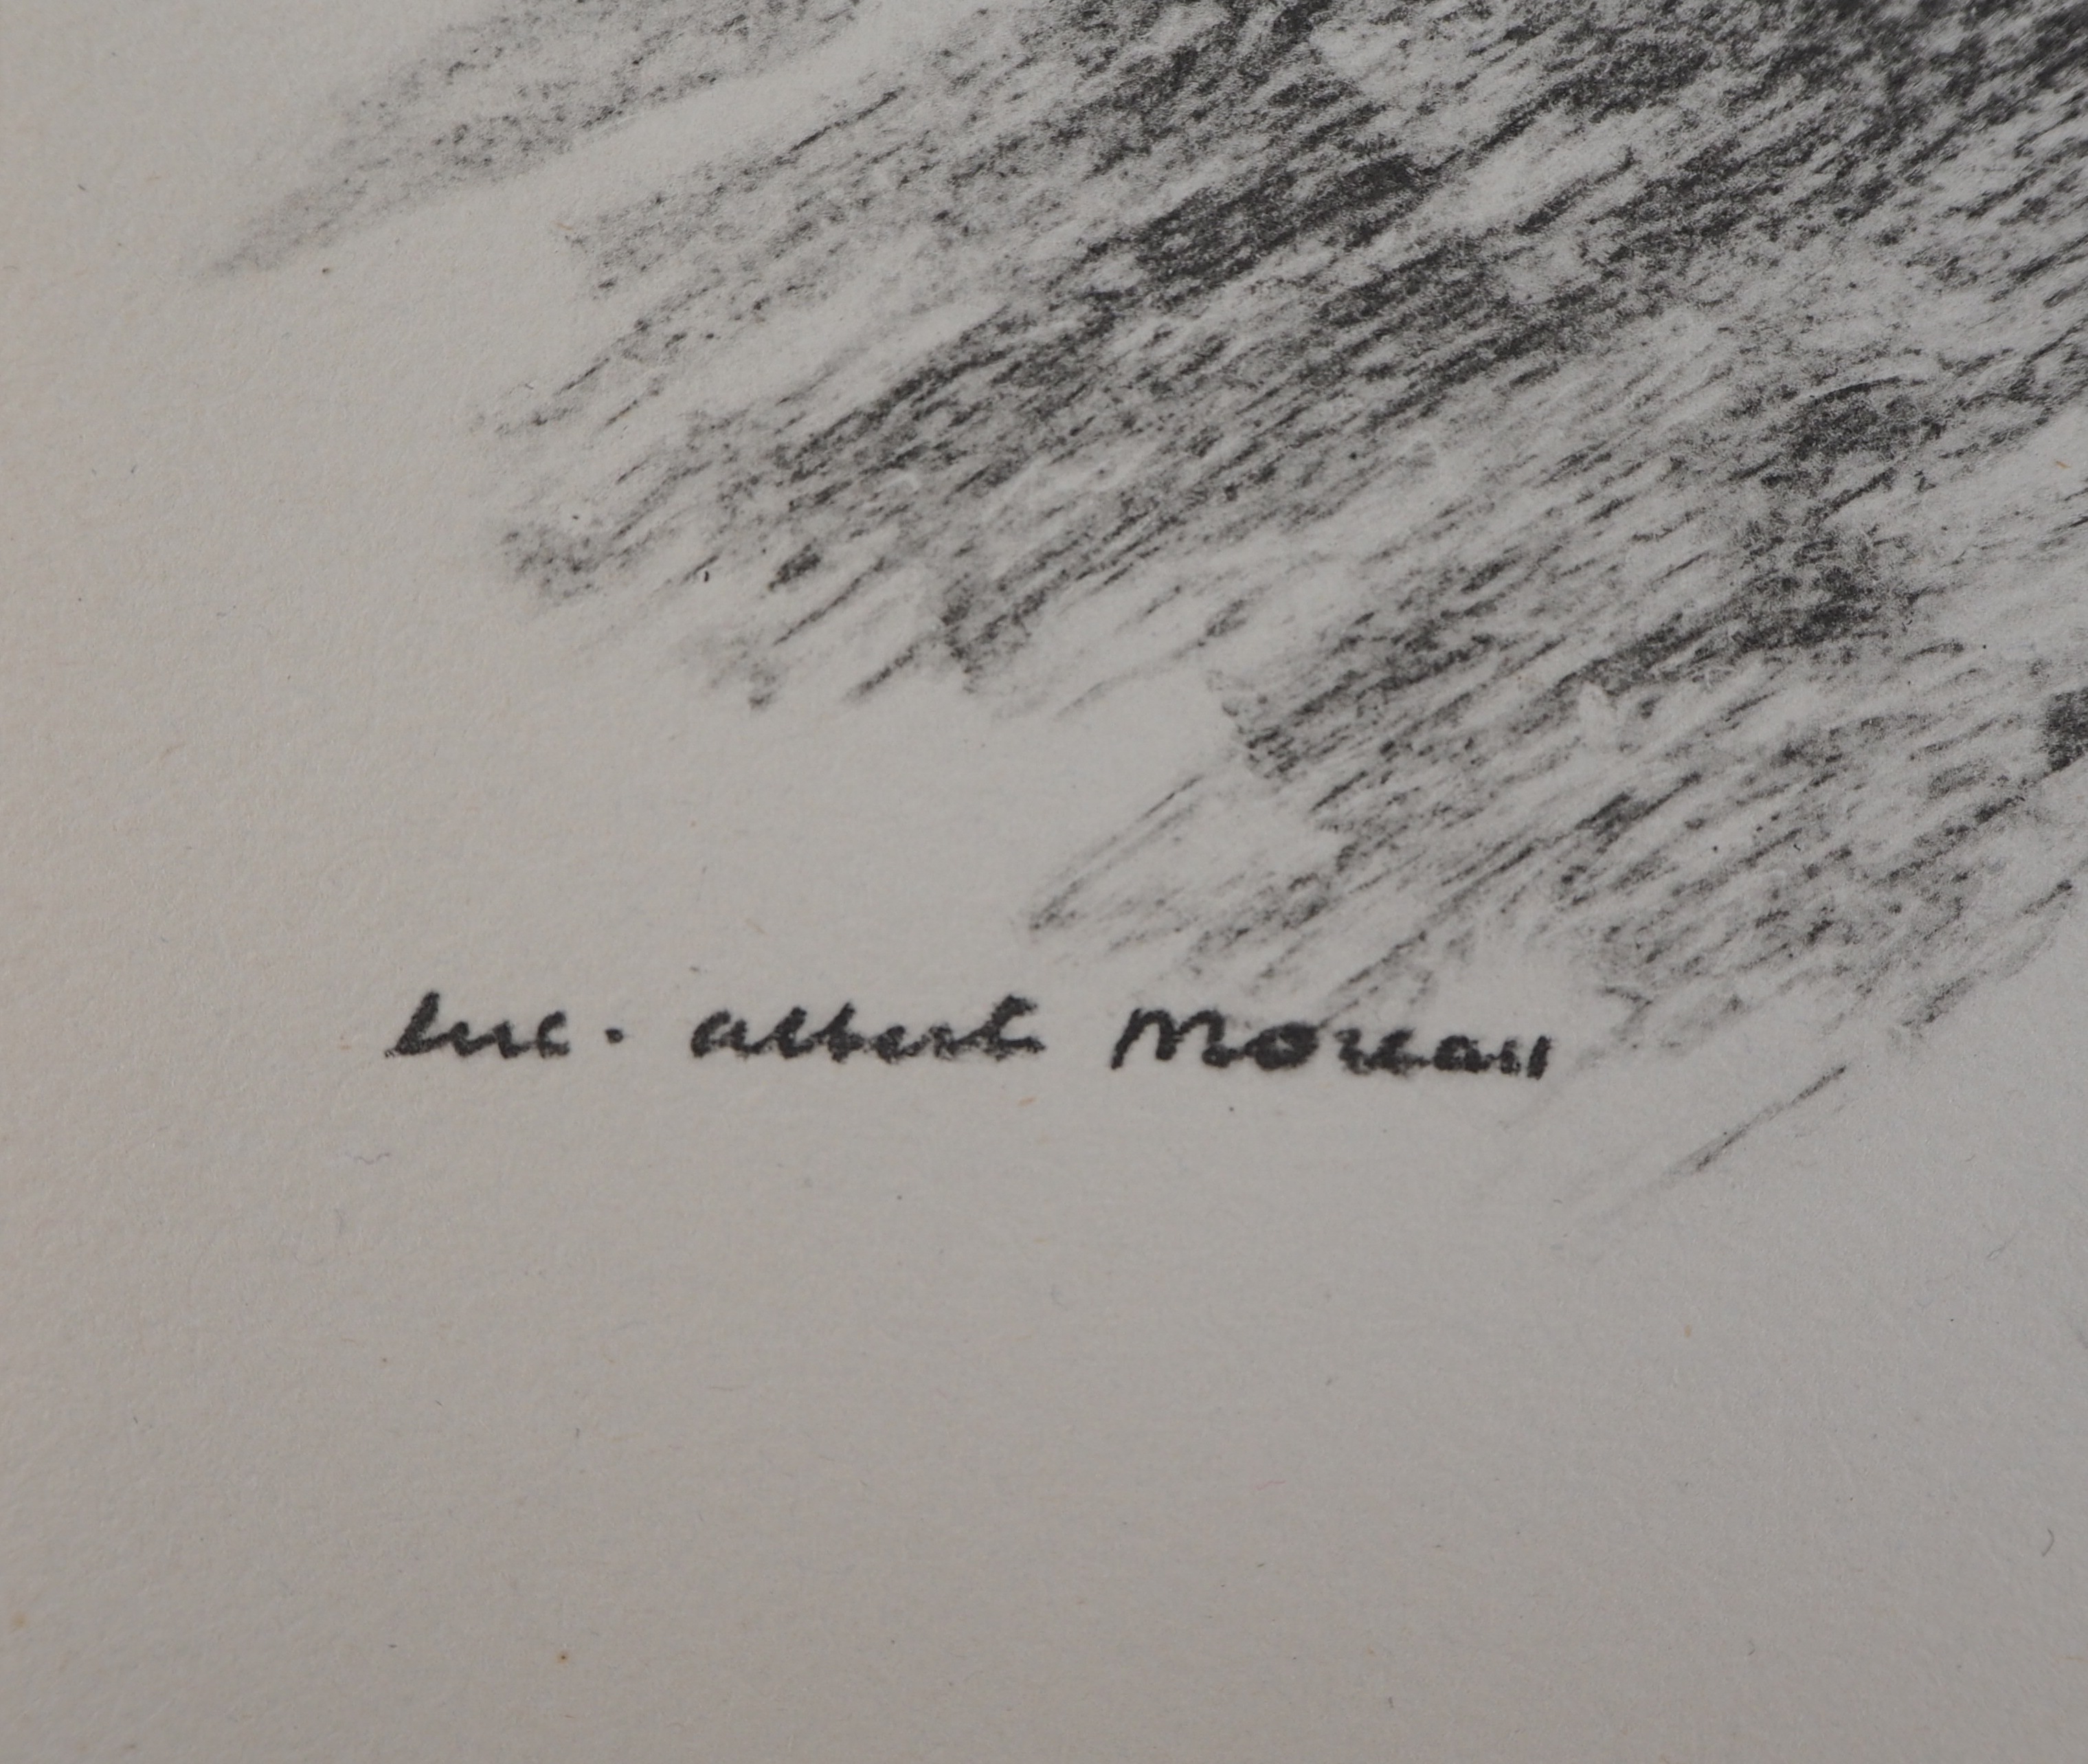 luc. albert Moreau